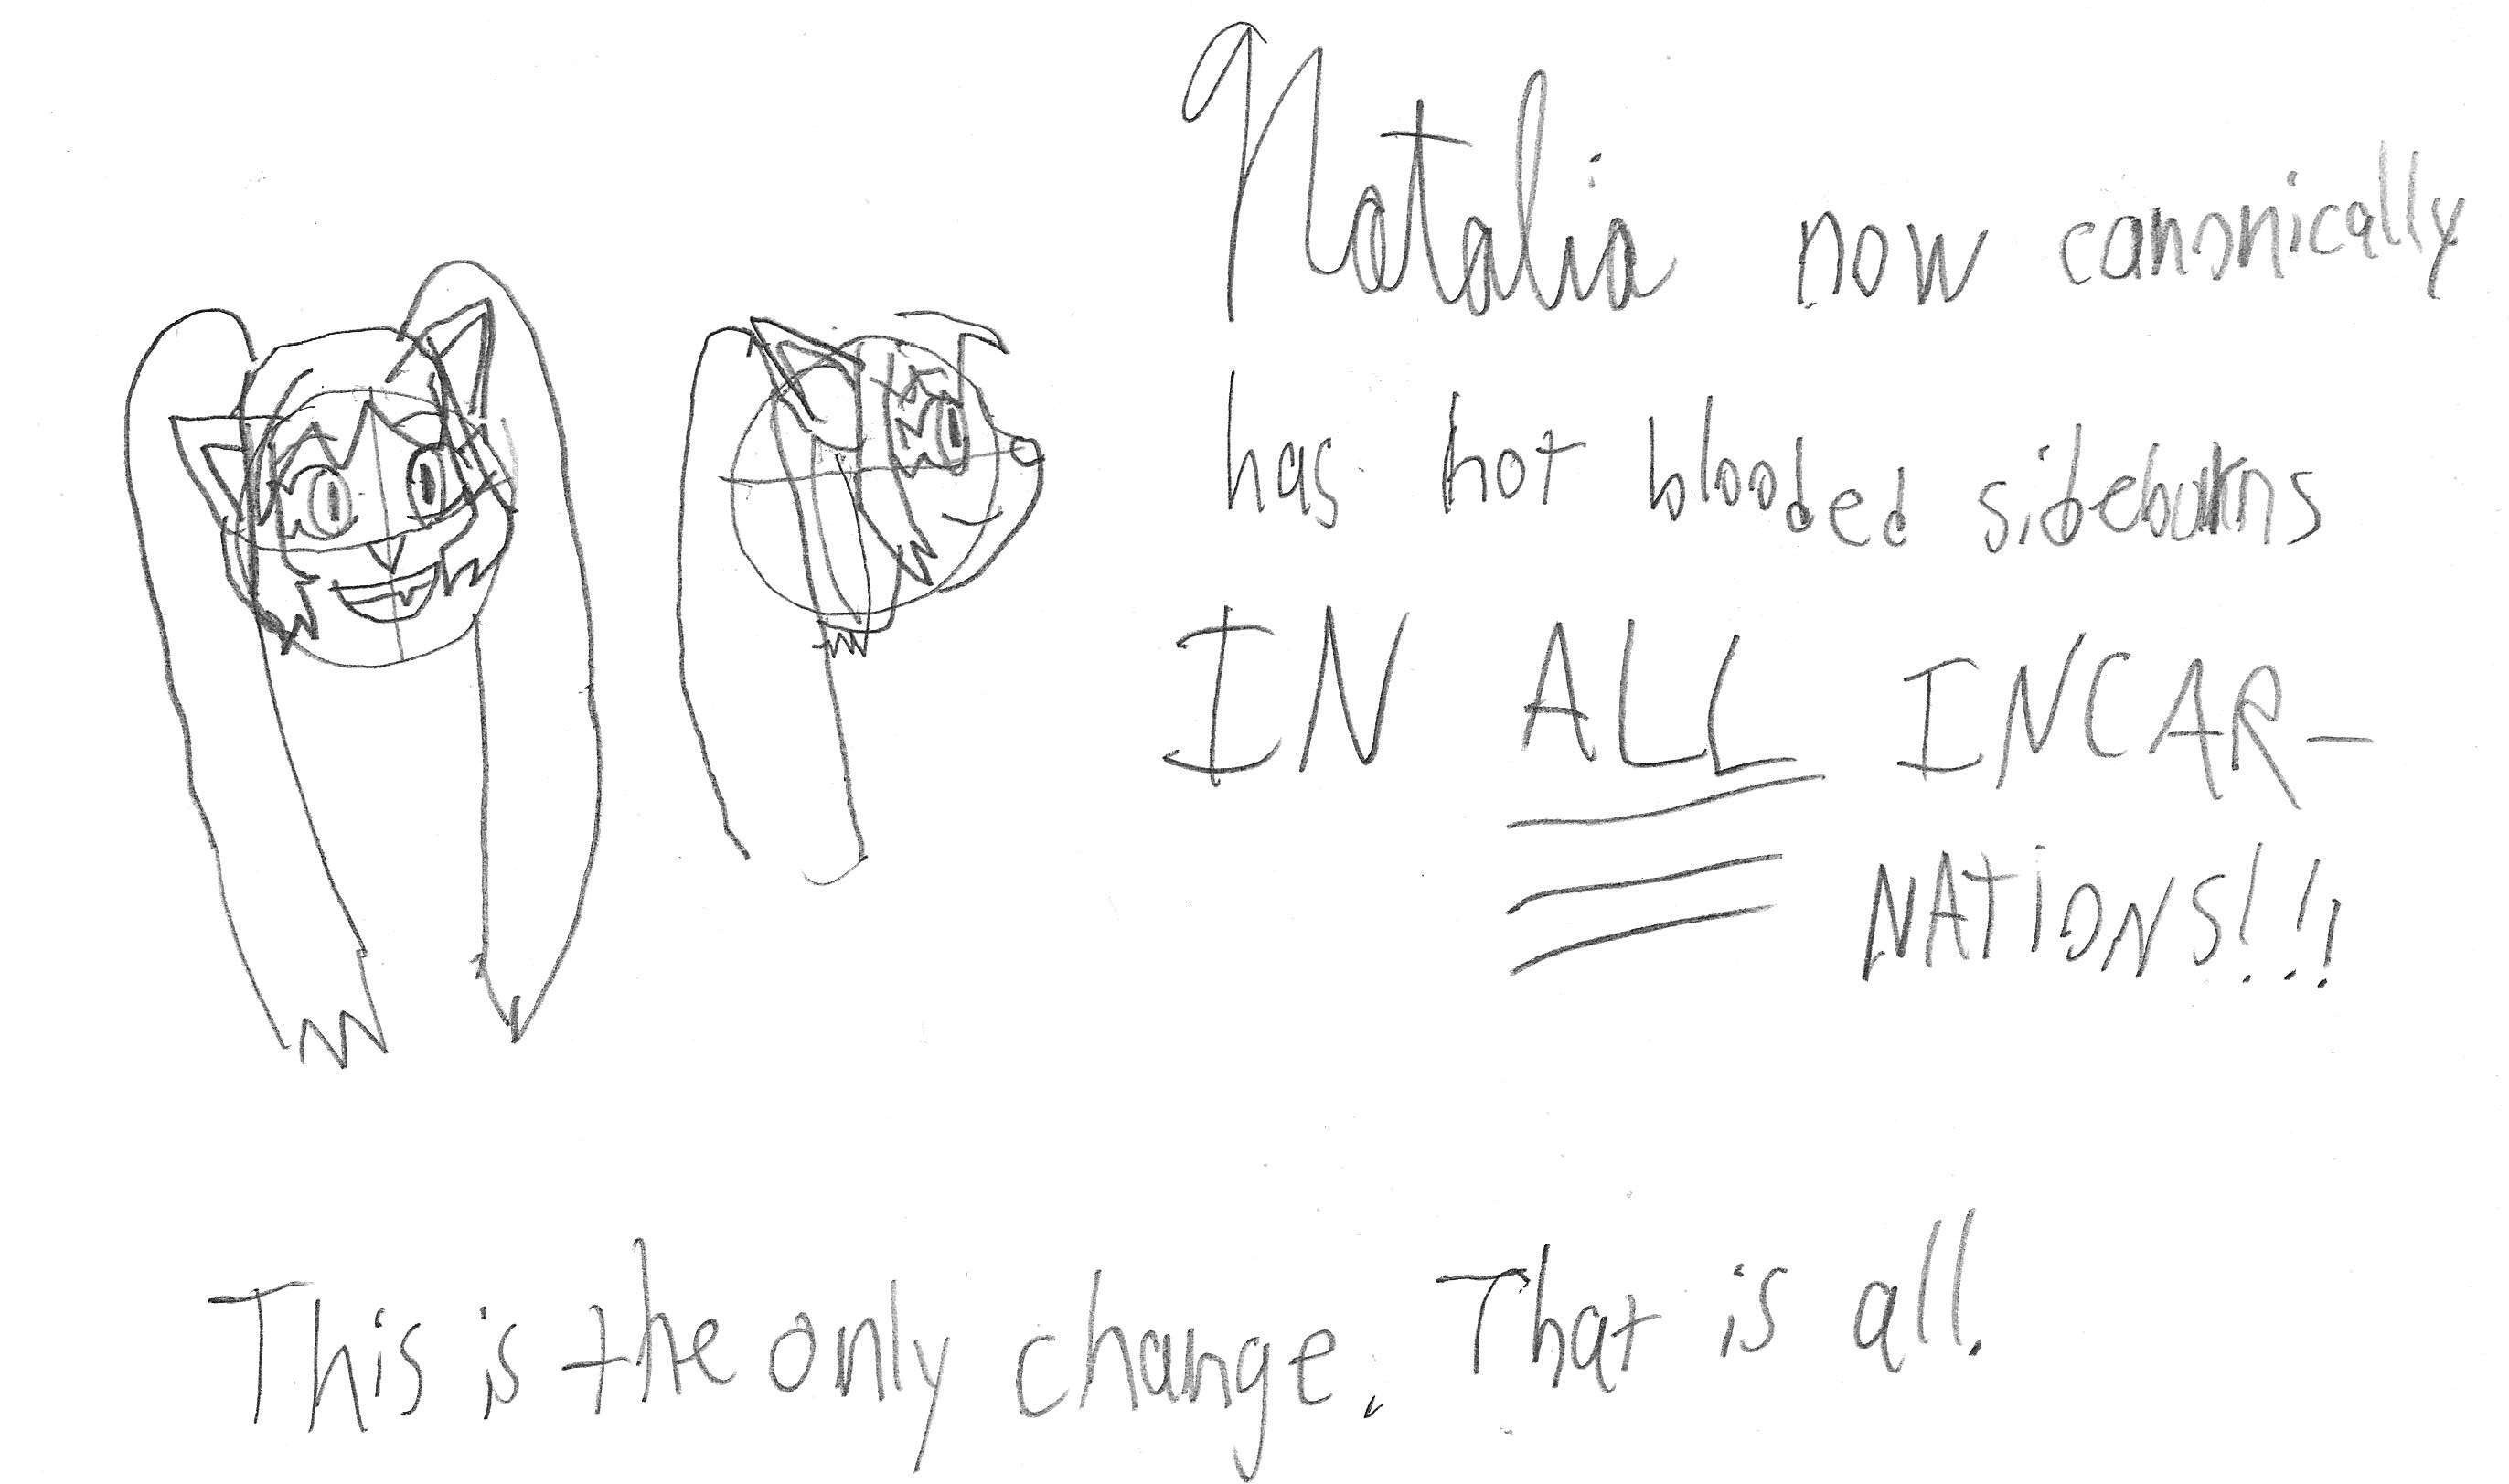 Natalia now canonically
has hot blooded sideburns
IN ALL INCAR-
NATIONS!!!
This is the only change. That is all.